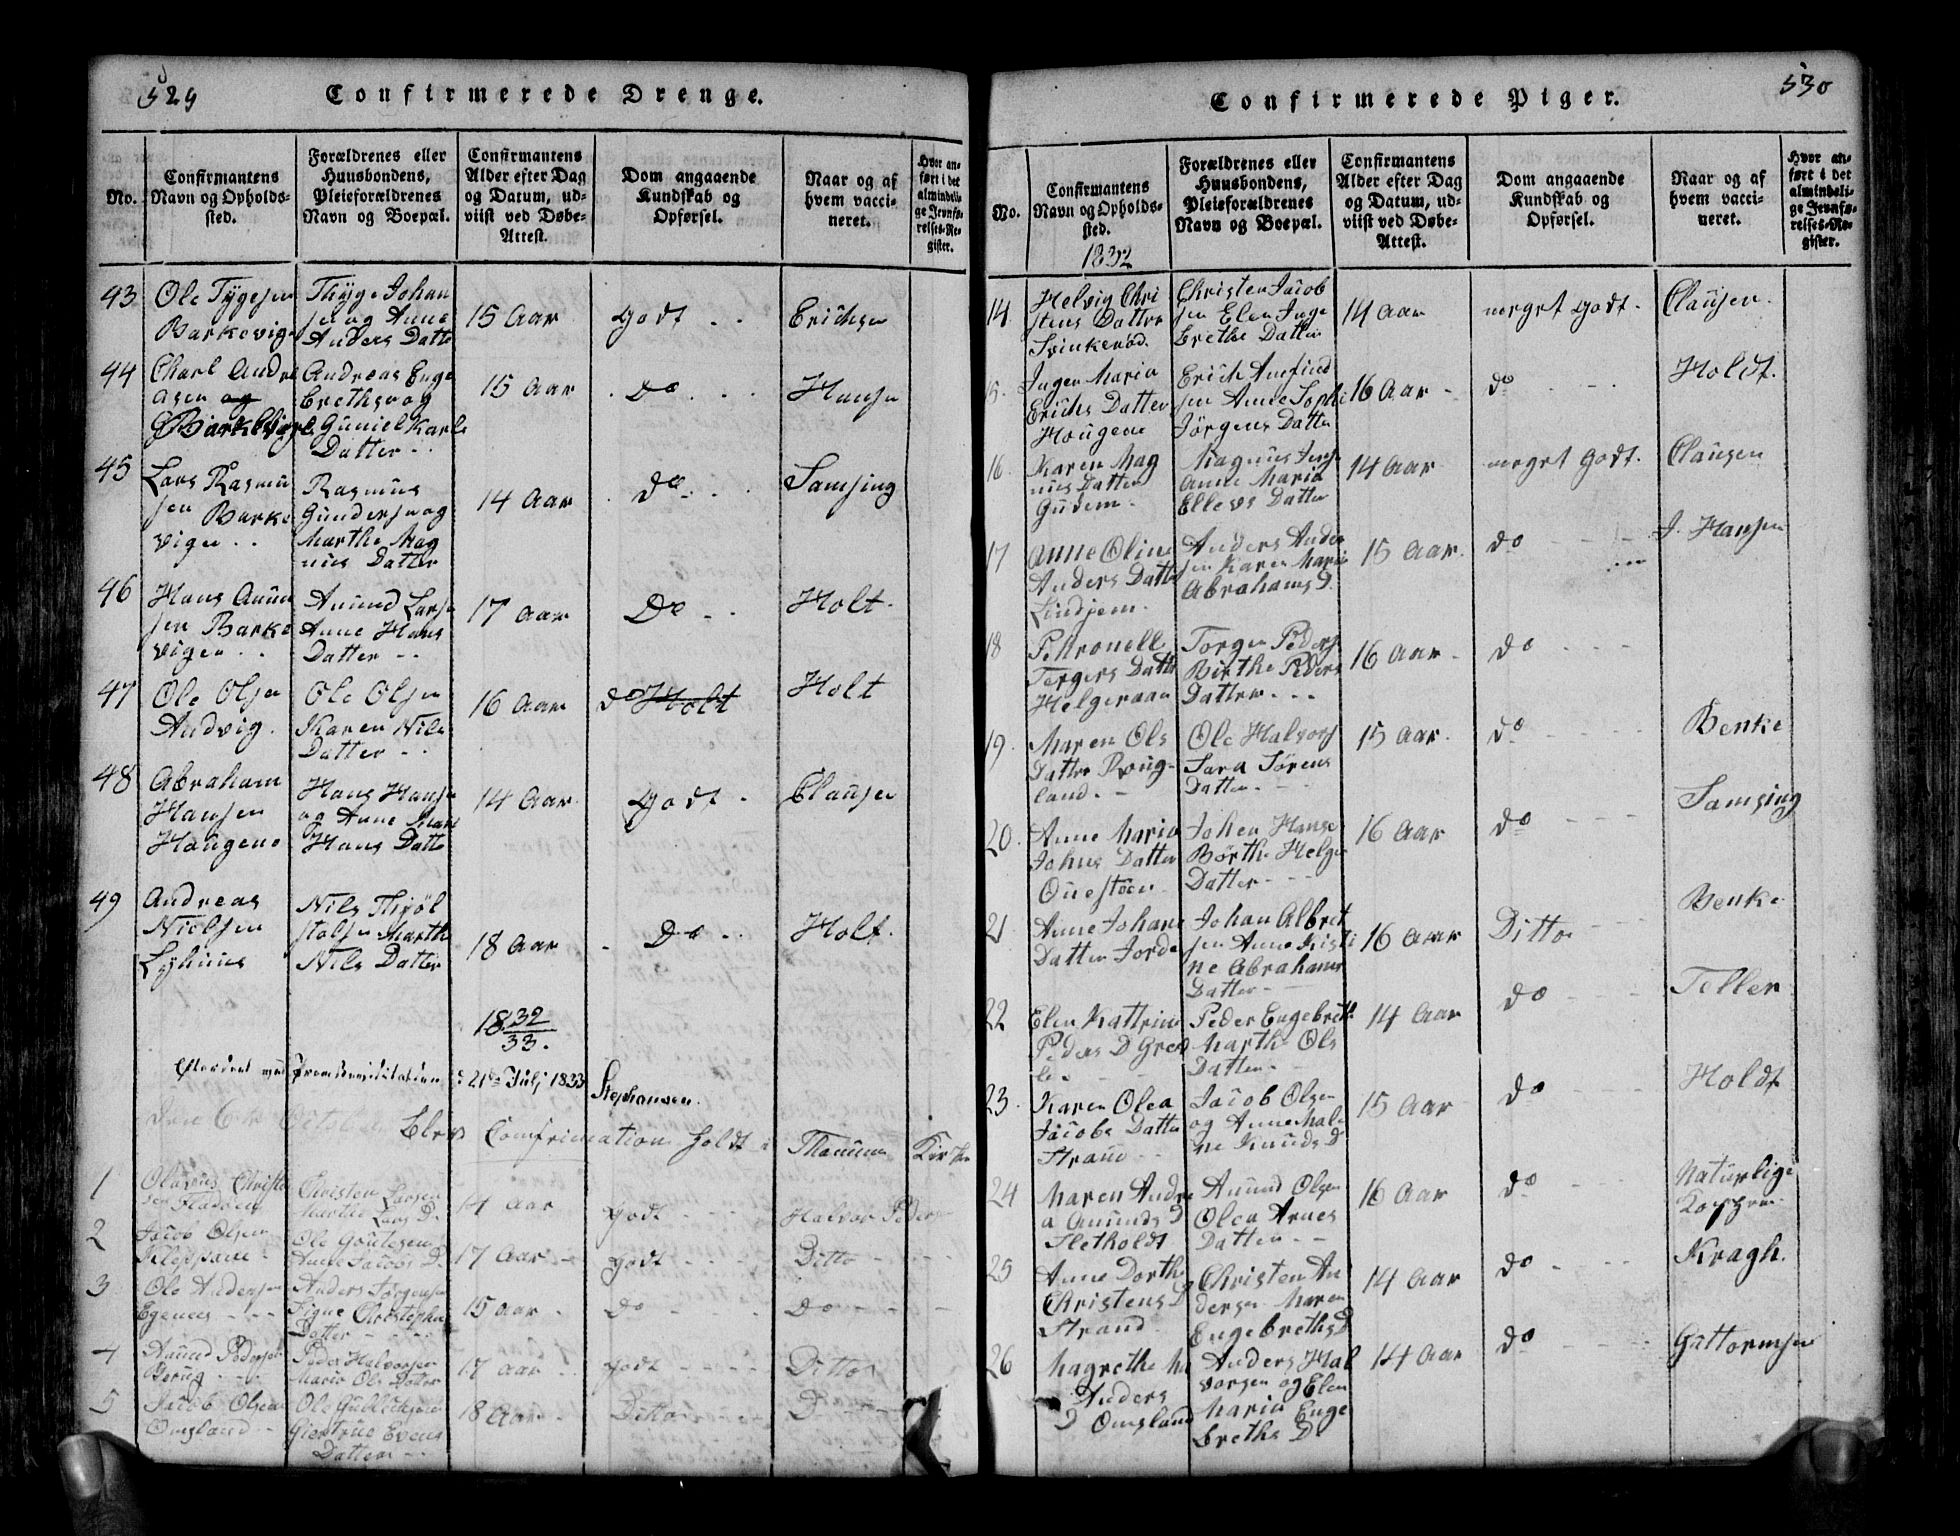 529
Confirmerede Drenge.
No.
Confirmantens
Navn og Opholds-
sted.
Forældrenes eller
Huusbondens,
Pleieforældrenes
Navn og Boepæl.
Confirmantens
Alder efter Dag
og Datum, ud-
viist ved Døbe-
Attest.
Dom angaaende
Kundskab og
Opførsel.
Naar og af
hvem vacci-
neret.
Hvor an-
ført i det
almindeli-
ge Jevnfø-
relses-Re-
gister.
43
Ole Tygesen
Barkevige
Thyge Johan
sen og Anne
Anders Datte
15 Aar
Godt
Erichsen
44
Charl Andre
asen og
Barkevig
Andreas Enge
brethsen og
Guniel Karls
Datter
15 Aar
Do
Hansen
45
Lars Rasmu
sen Barke
vigen
Rasmus
Gundersen og
Marthe Mag
nus Datter
14 Aar
Do
Samsing
46
Hans Anun
sen Barke
vigen
Anund Larse
Anne Hans
Datter
17 Aar
Do
Holt.
47
Ole Olsen
Andvig.
Ole Olsen
Karen Nils
Datter
16 Aar
do Holt
Holt
48
Abraham
Hansen
Haugene
Hans Hansen
og Anne Mari
Hans Datte
14 Aar
Godt
Clausen
49
Andreas
Nielsen
Lyhuus
Nils Thjøl
stolsen Marthe
Nils Datter
18 Aar
Do
Holt.
1832
33.
Efterseet ved Provstevisitation
21de Julj 1833
Stephansen.
Den 6te October
Blev Confirmation holdt i
Kirken
1
Christen Larsen
Marthe Lars D.
14 Aar
Godt
Halvor Peders
2
Jacob Olsen
Klepsane
Anne Jacobs D.
17 Aar
Godt
Ditto
3
Ole Andersen
Egenes
Anders Jørgensen
Signe Christophe
Datter
15 Aar
Do
Do
4
Anund Pedersen
Berug
Peder Halvorsen
Marie Ols Datter
17 Aar
Godt
Ditto
5
Jacob Olsen
Omsland
Ole
Giertrue Evens
Datter
18 Aar
Ditto
D
530
Confirmerede Piger.
No.
Confirmantens
Navn og Opholds-
sted.
1832
Forældrenes eller
Huusbondens,
Pleieforældrenes
Navn og Boepæl.
Confirmantens
Alder efter Dag
og Datum, ud-
viist ved Døbe-
Attest.
Dom angaaende
Kundskab og
Opførsel.
Naar og af
hvem vacci-
neret.
Hvor an-
ført i det
almindeli-
ge Jevnfø-
relses-Re-
gister.
14
Helvig Chri
stens Datter
Svinkerød.
Christen Jacob
sen Elen Inge
brethe Datter
14 Aar
meget Godt.
Clausen.
15.
Inger Maria
Erichs Datter
Hougene
Erich Amfind
sen Anne Sophi
Jørgens Datter
16 Aar
do
Holdt.
16
Karen Mag
nus Datter
Gudem.
Magnus Jens
Anne Maria
Ellevs Datter
14 Aar
meget Godt.
Clausen
17
Anne Oline
Anders Datte
Lindjem.
Anders Ander
sen Karen Marie
Abrahams D.
15 Aar.
do
J. Hansen
18
Petronelle
Tergers Datte
Helgeraan
Torger Peders
Birthe Peders
Datter
16 Aar
do
19.
Maren Ols
Datter Roug-
land.
Ole Halvors
Sara Sørens
Datter
15 Aar.
do
Benke
20
Anne Maria
Johns Datter
Onestøen
Johen Hanse
Børthe Helge
Datter
16 Aar
do
Samsing
21
Anne Johane
Datter Jorde
Johan Albret
sen Anne Kisti
ne Abrahams
Datter
16 Aar
Ditto
Benke
22
Elen Kattrine
Peders D
Peder Engebreth
Marthe Ols
Datter
14 Aar
do
Teller
23
Karen Olea
Jacobs Datte
Strand
Jacob Olsen
og Anne Male
ne Knuds D
15 Aar
do
Holdt
24
Maren Andre
a Anunds D
Sletholdt
Anund Olsen
Olea Arnes
Datter
16 Aar
do
Naturlige
Kopper
25
Anne Dorthe
Christens D
Strand
Christen An
dersen Maren
Engebreths D
14 Aar
do
Kragh.
26
Magrethe Ma
Anders
D Omsland
Anders Hal
vorsen og Elen
Maria Enge
breths D
14 Aar
do
Guttormsen